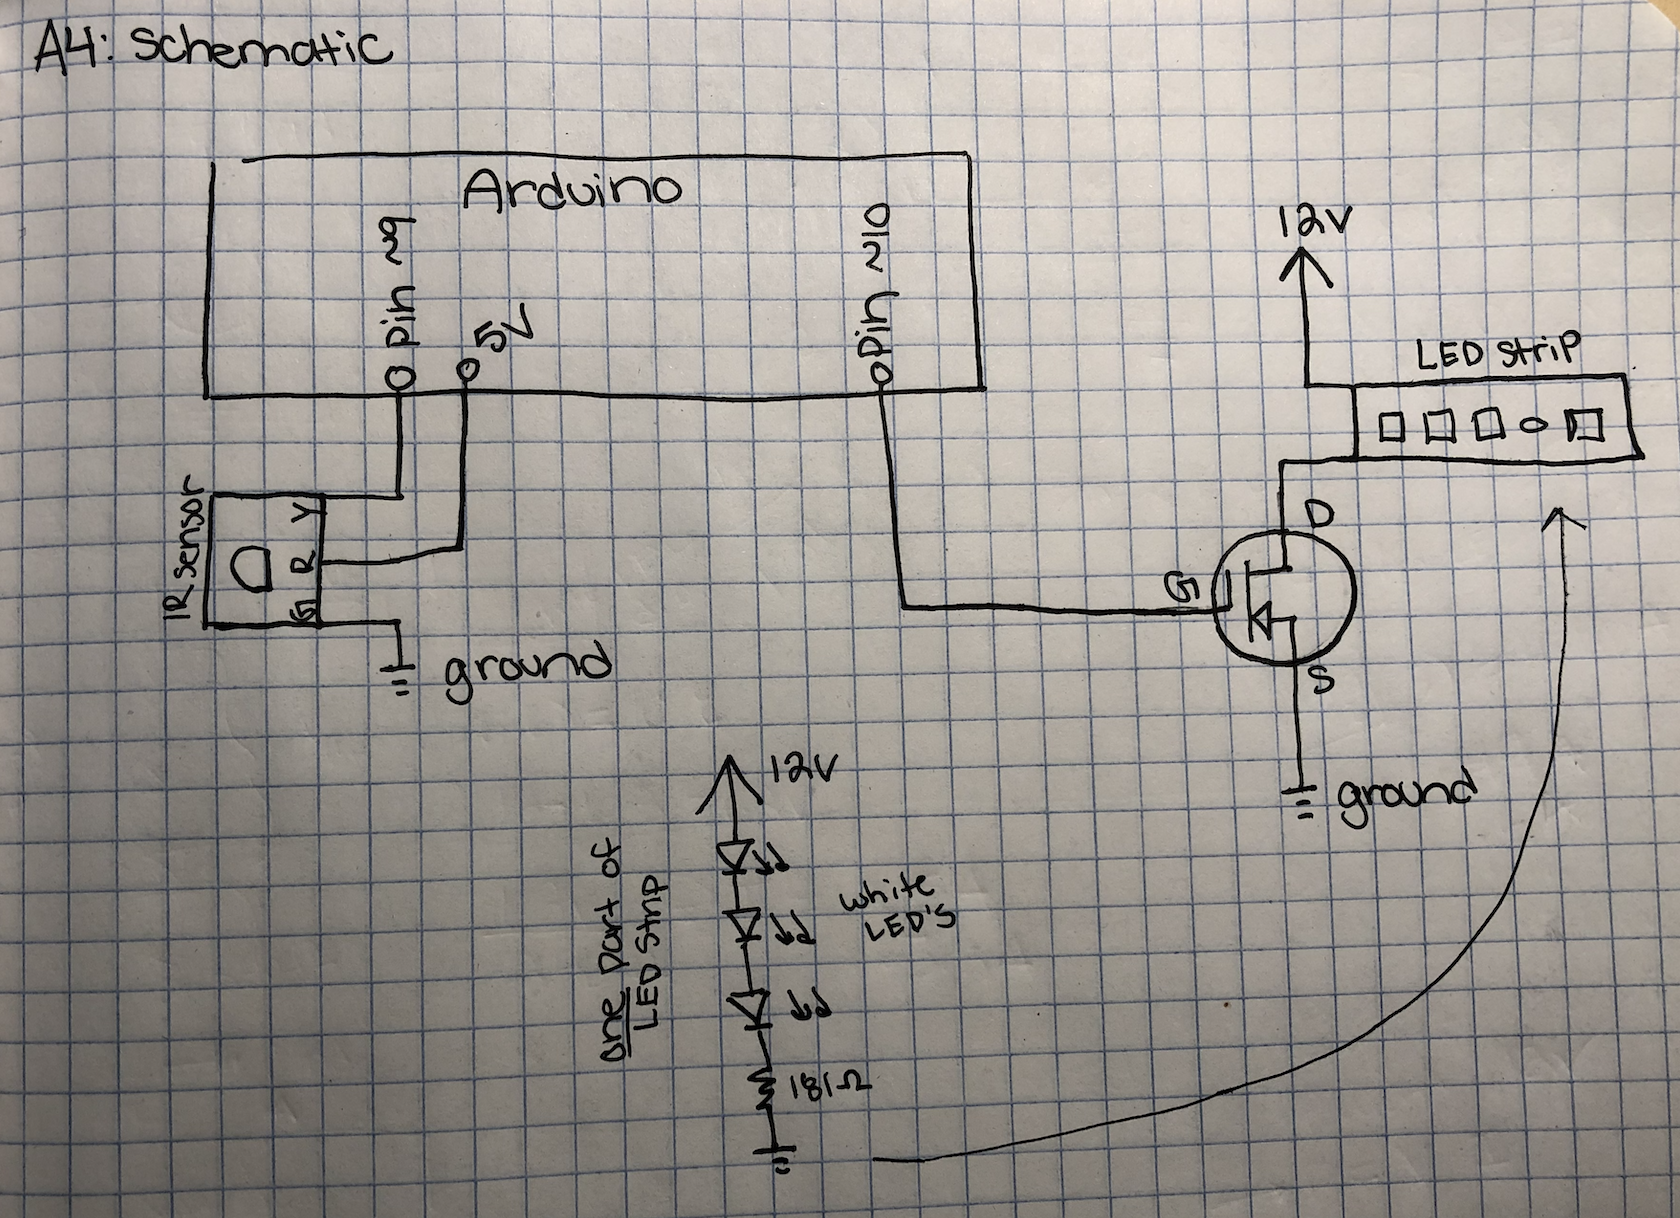 A4: Schematic
Arduino
pin ~9
5V
pin ~10
12V
LED Strip
IR sensor
Y
R
G
ground
D
G
S
ground
12V
one part of
LED Strip
white
LED'S
181Ω